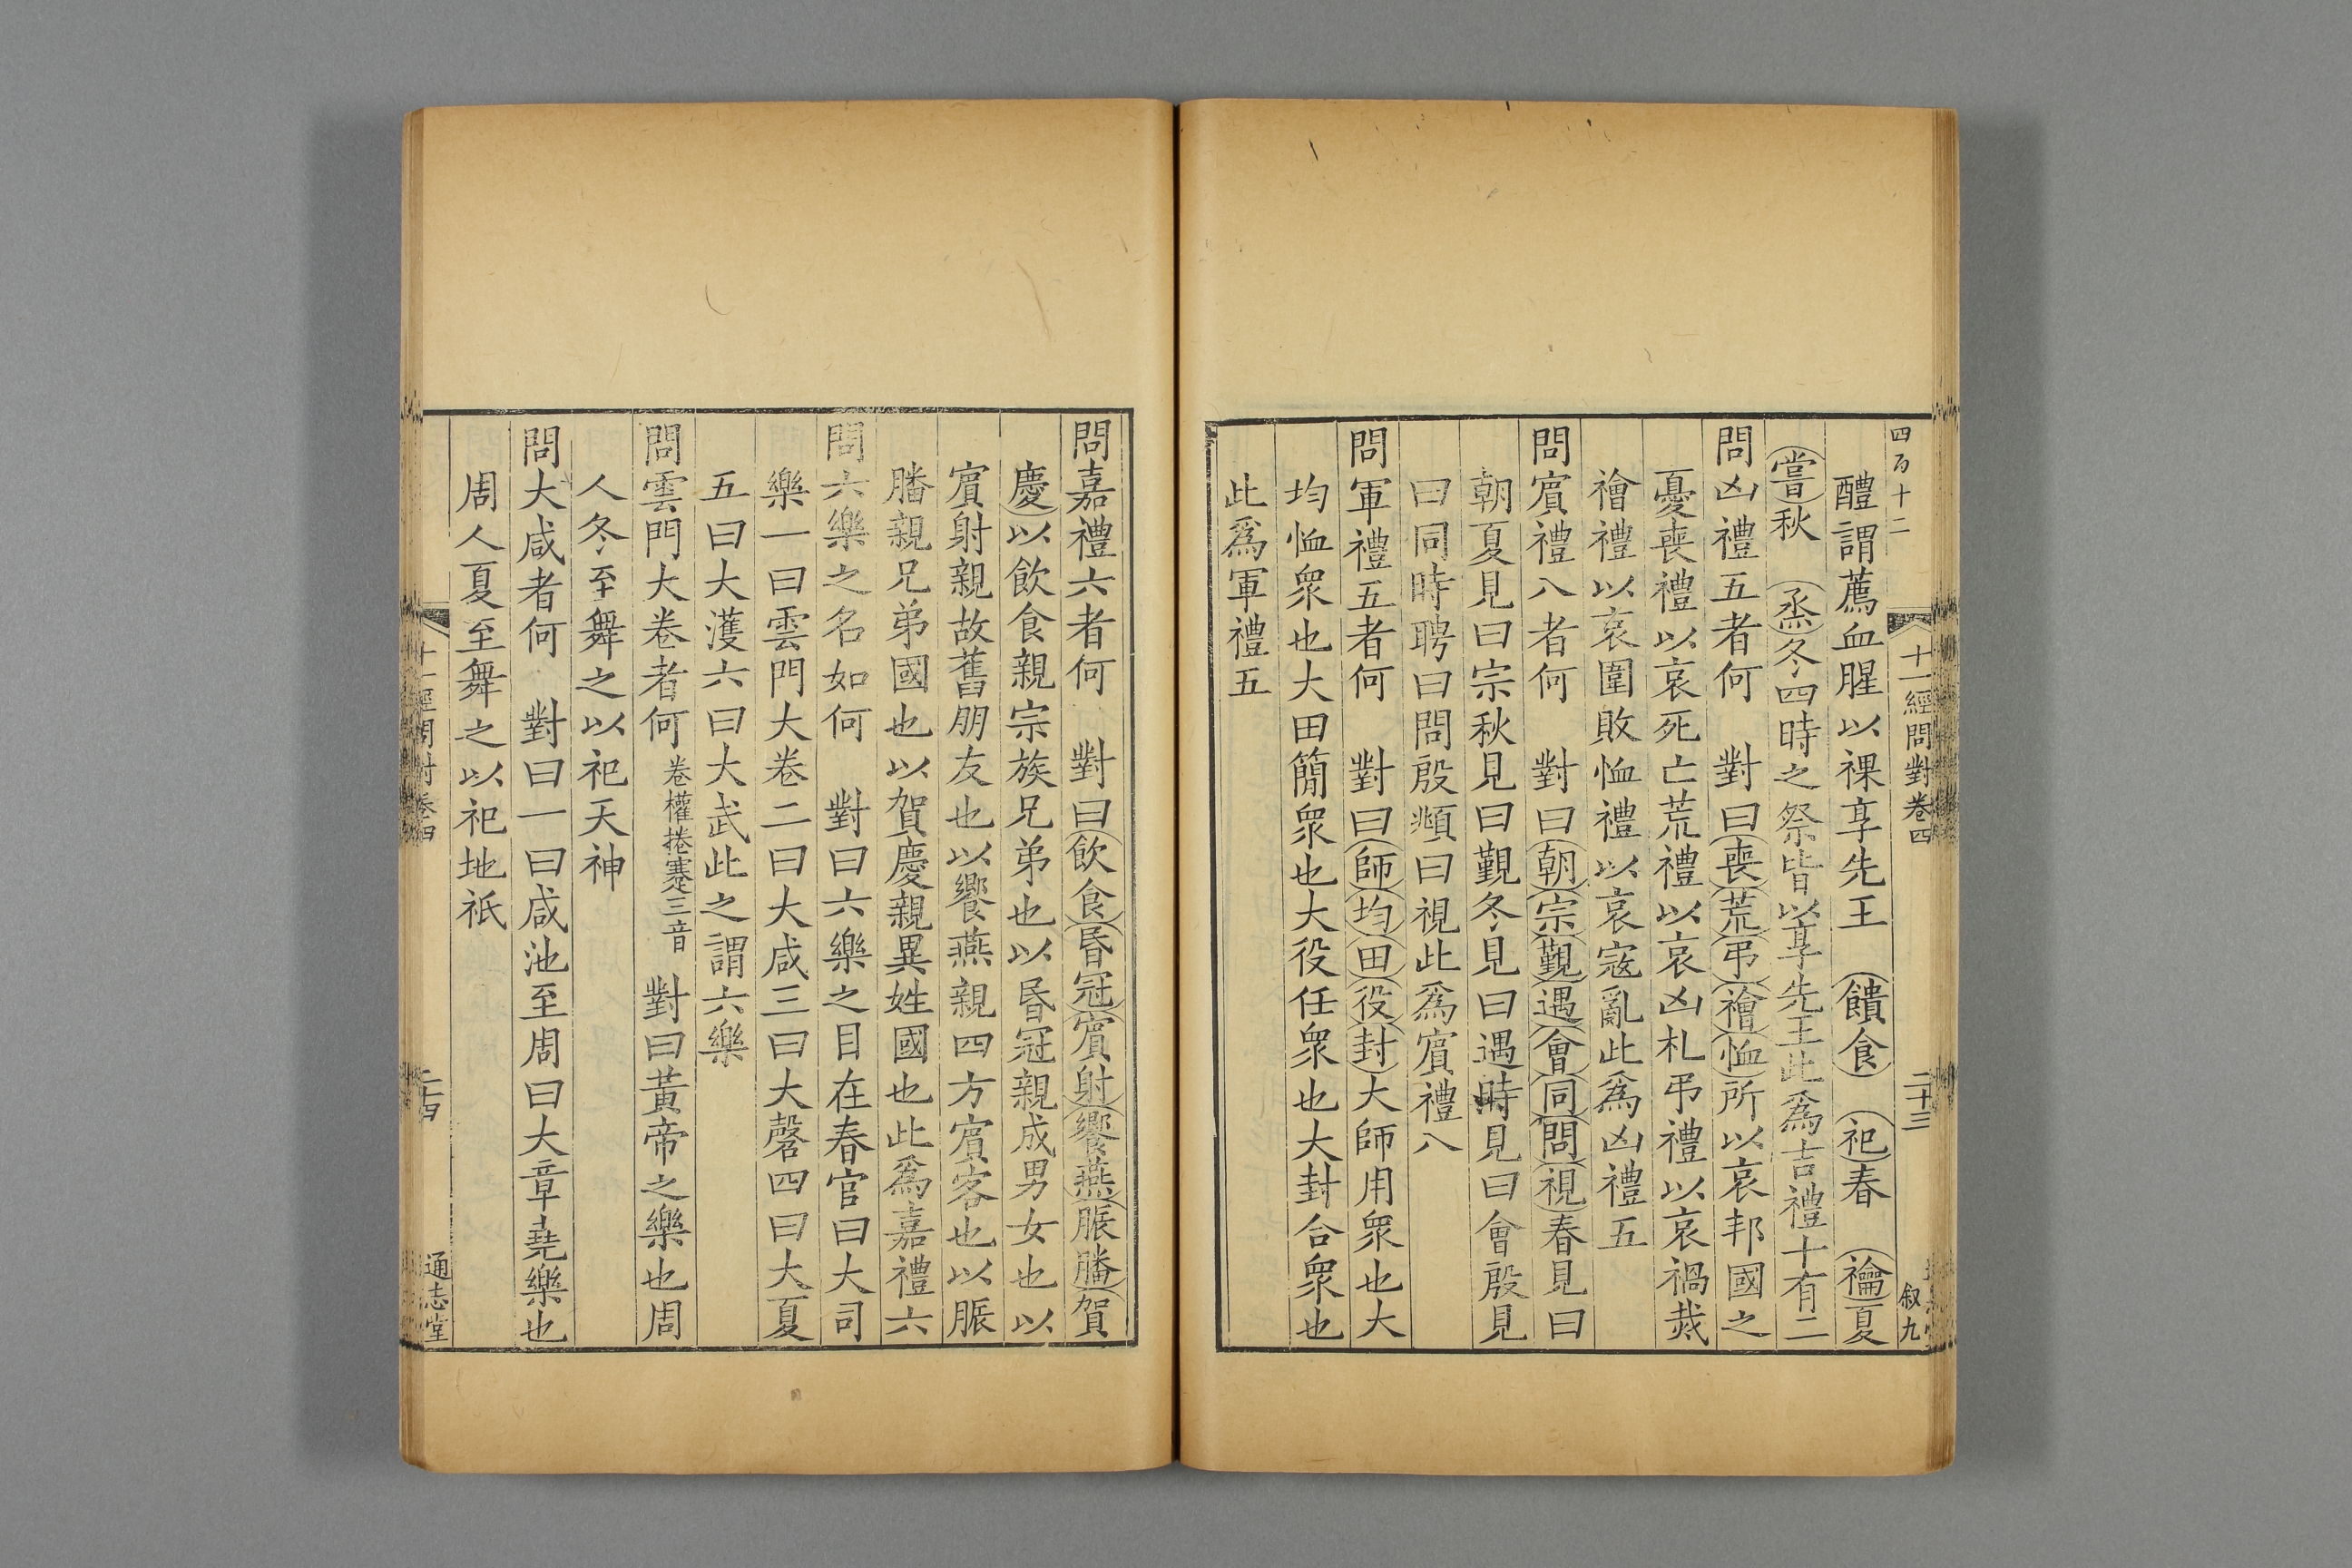 四百十二
十一經問對卷四
二十三
叙九
醴謂薦血腥以祼享先王　饋食　祀春　禴夏
嘗秋　烝冬四時之祭皆以享先王此爲吉禮十有二
問凶禮五者何　對曰喪荒弔禬恤所以哀邦國之
憂喪禮以哀死亡荒禮以哀凶札弔禮以哀禍烖
禬禮以哀圍敗恤禮以哀寇亂此爲凶禮五
問賔禮八者何　對曰朝宗覲遇會同問視春見曰
朝夏見曰宗秋見曰覲冬見曰遇時見曰會殷見
曰同時聘曰問殷頫曰視此爲賔禮八
問軍禮五者何　對曰師均田役封大師用衆也大
均恤衆也大田簡衆也大役任衆也大封合衆也
此爲軍禮五
問嘉禮六者何　對曰飲食昬冠賔射饗燕脤膰賀
慶以飲食親宗族兄弟也以昬冠親成男女也以
賔射親故舊朋友也以饗燕親四方賔客也以脤
膰親兄弟國也以賀慶親異姓國也此爲嘉禮六
問六樂之名如何　對曰六樂之目在春官曰大司
樂一曰雲門大卷二曰大咸三曰大磬四曰大夏
五曰大濩六曰大武此之謂六樂
問雲門大卷者何　卷權捲蹇三音　對曰黃帝之樂也周
人冬至舞之以祀天神
問大咸者何　對曰一曰咸池至周曰大章堯樂也
周人夏至舞之以祀地祇
十一經問對卷四
二十四
通志堂